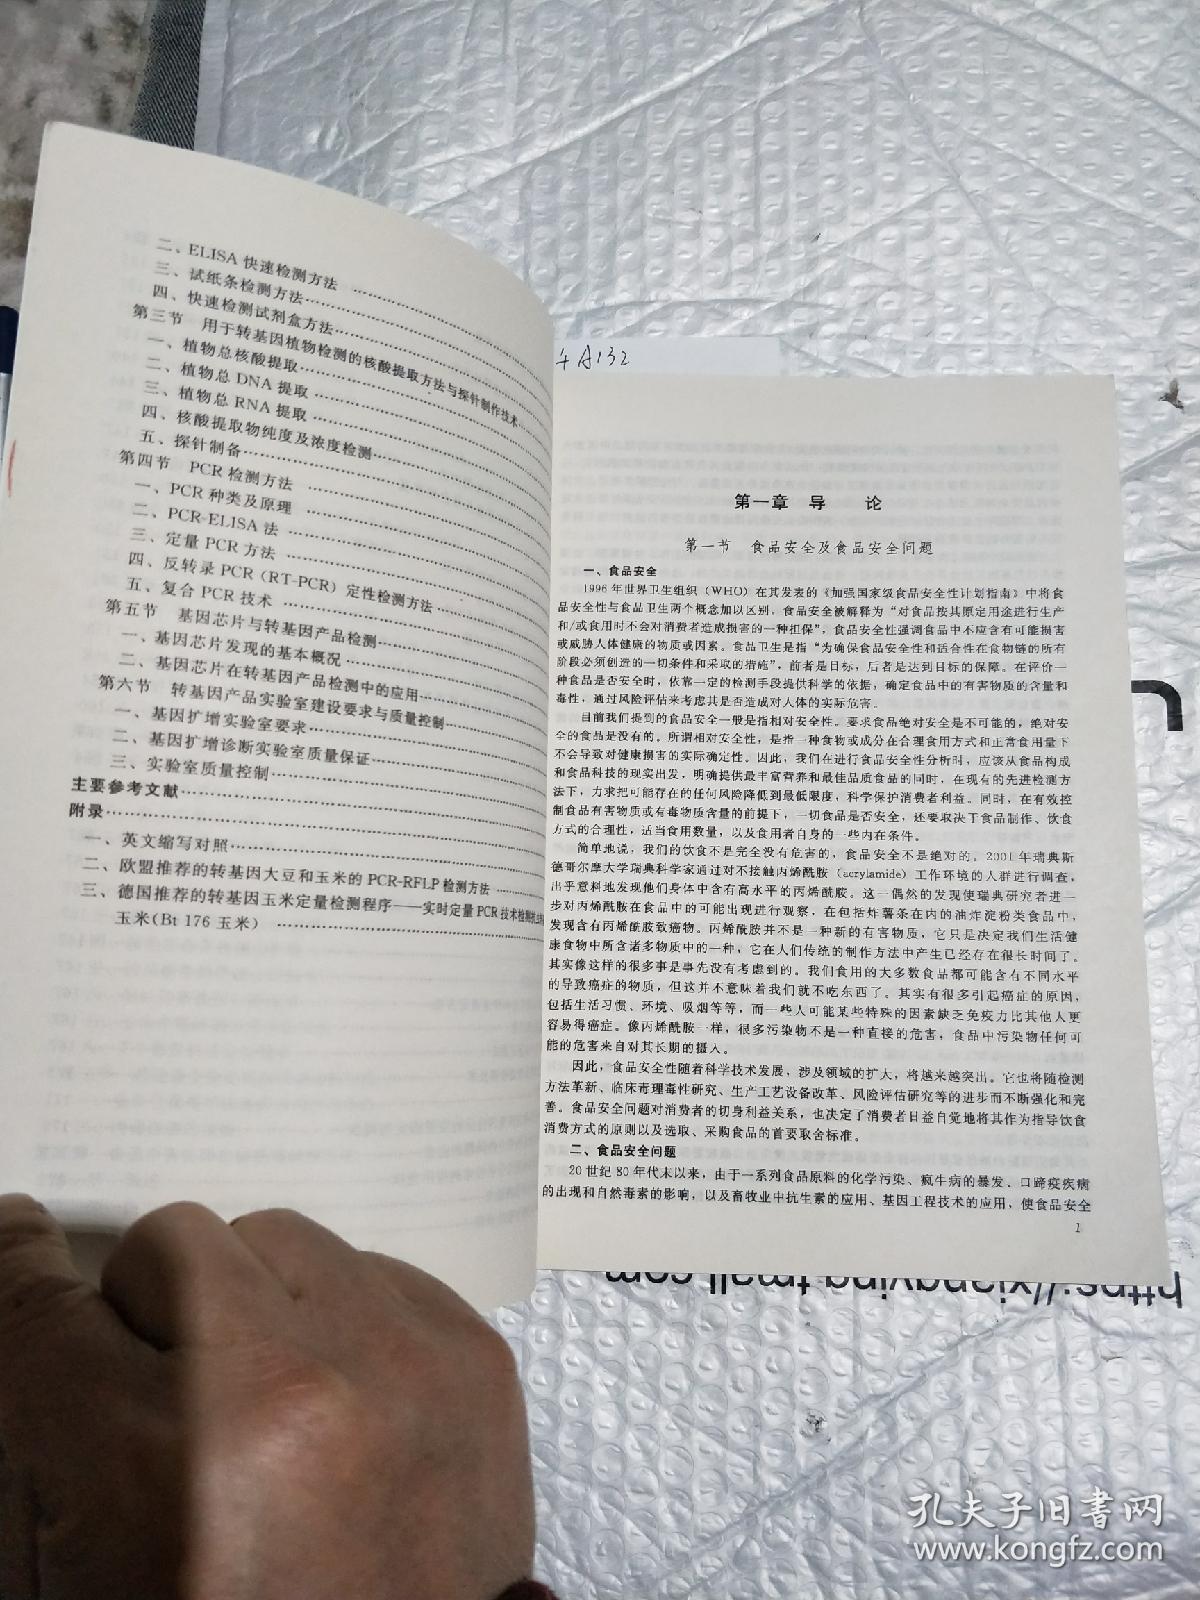 二、ELISA 快速检测方法 ……
三、试纸条检测方法……
四、快速检测试剂盒方法……
第三节 用于转基因植物检测的核酸提取方法与探针制作技术……
一、植物总核酸提取……
二、植物总 DNA 提取……
三、植物总 RNA 提取……
四、核酸提取物纯度及浓度检测……
五、探针制备……
第四节 PCR 检测方法 ……
一、PCR 种类及原理 ……
二、PCR-ELISA 法 ……
三、定量 PCR 方法 ……
四、反转录 PCR（RT-PCR）定性检测方法……
五、复合 PCR 技术 ……
第五节 基因芯片与转基因产品检测……
一、基因芯片发现的基本概况……
二、基因芯片在转基因产品检测中的应用……
第六节 转基因产品实验室建设要求与质量控制……
一、基因扩增实验室要求……
二、基因扩增诊断实验室质量保证……
三、实验室质量控制……
主要参考文献……
附录……
一、英文缩写对照……
二、欧盟推荐的转基因大豆和玉米的 PCR-RFLP 检测方法……
三、德国推荐的转基因玉米定量检测程序——实时定量 PCR 技术检测
玉米(Bt 176 玉米) ……
A132
第一章 导 论
第一节 食品安全及食品安全问题
一、食品安全
1996 年世界卫生组织（WHO）在其发表的《加强国家级食品安全性计划指南》中将食
品安全性与食品卫生两个概念加以区别，食品安全被解释为“对食品按其原定用途进行生产
和/或食用时不会对消费者造成损害的一种担保”，食品安全性强调食品中不应含有可能损害
或威胁人体健康的物质或因素。食品卫生是指“为确保食品安全性和适合性在食物链的所有
阶段必须创造的一切条件和采取的措施”，前者是目标，后者是达到目标的保障。在评价一
种食品是否安全时，依靠一定的检测手段提供科学的依据，确定食品中的有害物质的含量和
毒性，通过风险评估来考虑其是否造成对人体的实际危害。
目前我们提到的食品安全一般是指相对安全性。要求食品绝对安全是不可能的，绝对安
全的食品是没有的。所谓相对安全性，是指一种食物或成分在合理食用方式和正常食用量下
不会导致对健康损害的实际确定性。因此，我们在进行食品安全性分析时，应该从食品构成
和食品科技的现实出发，明确提供最丰富营养和最佳品质食品的同时，在现有的先进检测方
法下，力求把可能存在的任何风险降低到最低限度，科学保护消费者利益。同时，在有效控
制食品有害物质或有毒物质含量的前提下，一切食品是否安全，还要取决于食品制作、饮食
方式的合理性，适当食用数量，以及食用者自身的一些内在条件。
简单地说，我们的饮食不是完全没有危害的，食品安全不是绝对的。2001 年瑞典斯
德哥尔摩大学瑞典科学家通过对不接触丙烯酰胺（acrylamide）工作环境的人群进行调查，
出乎意料地发现他们身体中含有高水平的丙烯酰胺。这一偶然的发现使瑞典研究者进一
步对丙烯酰胺在食品中的可能出现进行观察，在包括炸薯条在内的油炸淀粉类食品中，
发现含有丙烯酰胺致癌物。丙烯酰胺并不是一种新的有害物质，它只是决定我们生活健
康食物中所含诸多物质中的一种，它在人们传统的制作方法中产生已经存在很长时间了。
其实像这样的很多事是事先没有考虑到的。我们食用的大多数食品都可能含有不同水平
的导致癌症的物质，但这并不意味着我们就不吃东西了。其实有很多引起癌症的原因，
包括生活习惯、环境、吸烟等等，而一些人可能某些特殊的因素缺乏免疫力比其他人更
容易得癌症。像丙烯酰胺一样，很多污染物不是一种直接的危害，食品中污染物任何可
能的危害来自对其长期的摄入。
因此，食品安全性随着科学技术发展，涉及领域的扩大，将越来越突出。它也将随检测
方法革新、临床毒理毒性研究、生产工艺设备改革、风险评估研究等的进步而不断强化和完
善。食品安全问题对消费者的切身利益关系，也决定了消费者日益自觉地将其作为指导饮食
消费方式的原则以及选取、采购食品的首要取舍标准。
二、食品安全问题
20 世纪 80 年代末以来，由于一系列食品原料的化学污染、疯牛病的暴发、口蹄疫疾病
的出现和自然毒素的影响，以及畜牧业中抗生素的应用、基因工程技术的应用，使食品安全
1
https://xiangying.tmall.com
孔夫子旧书网
www.kongfz.com